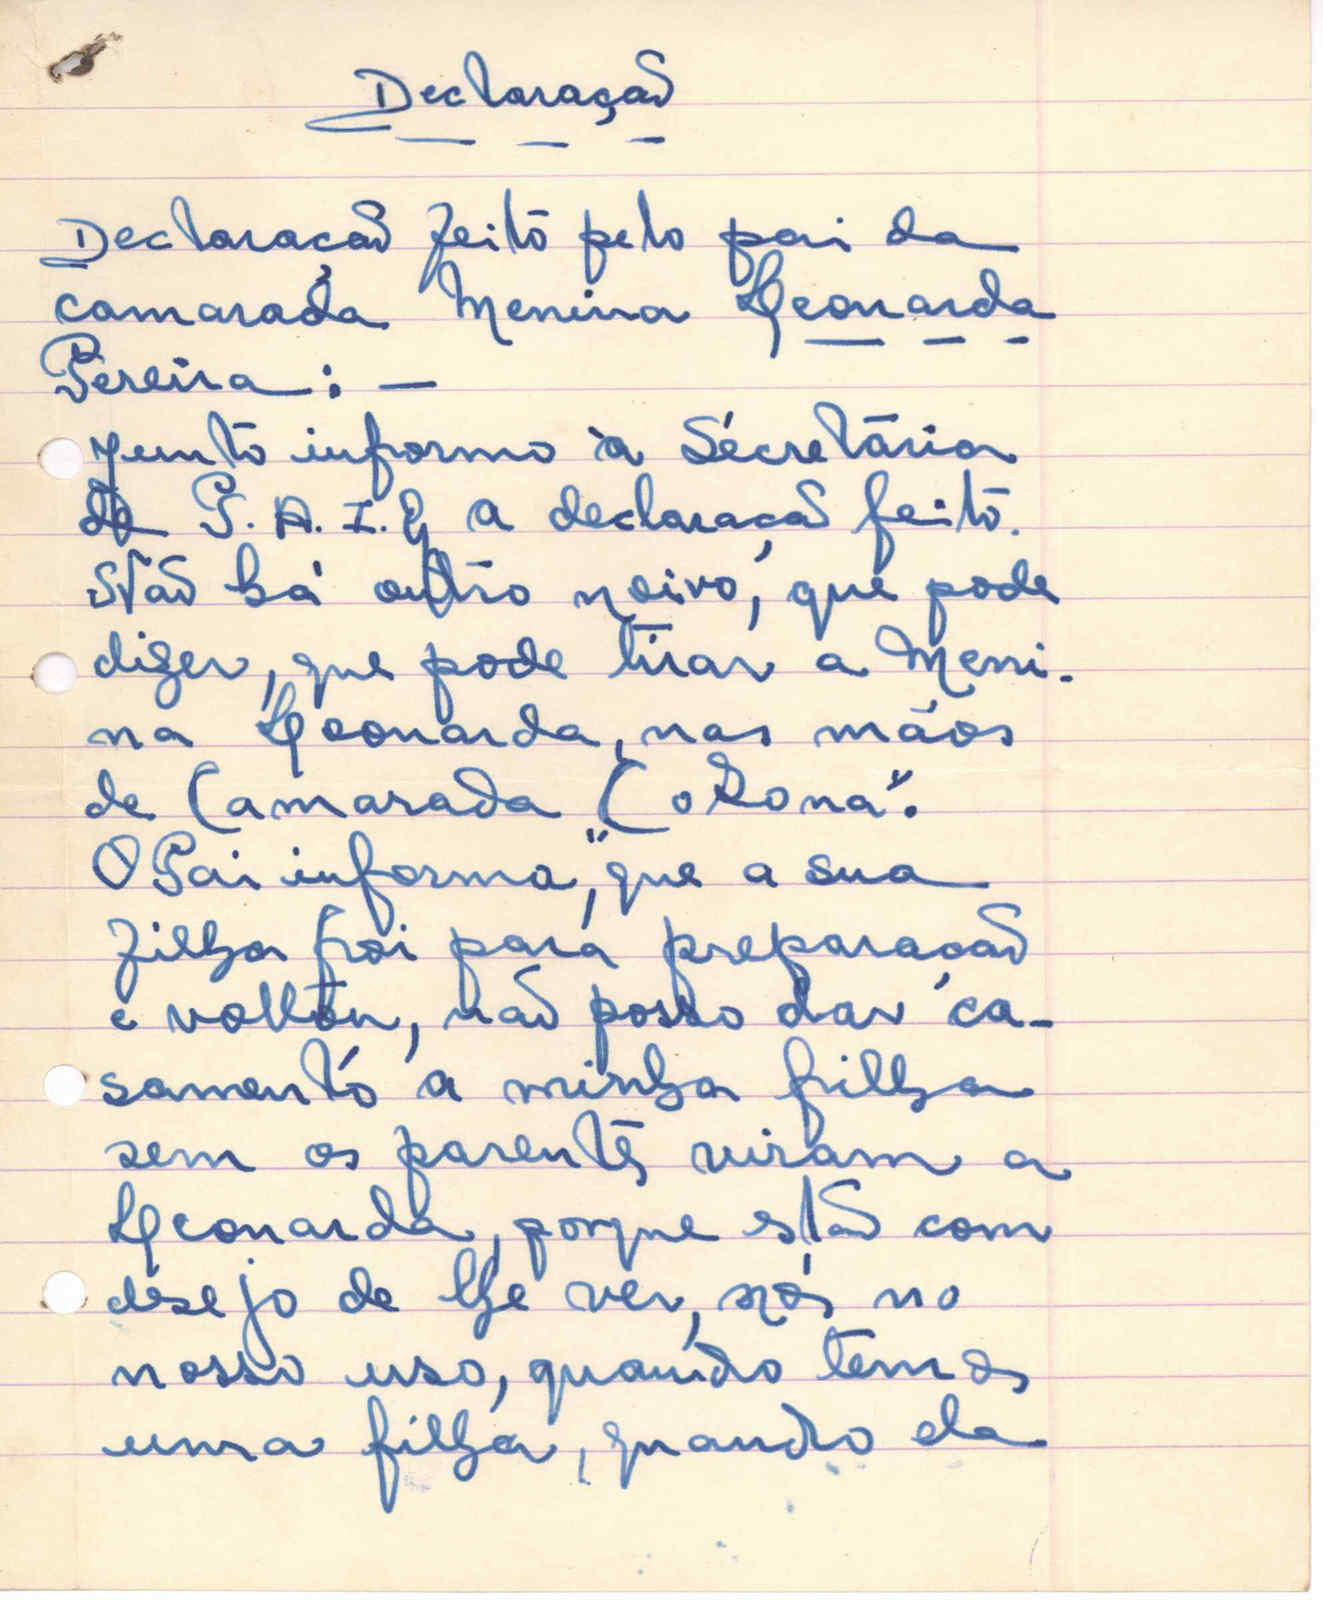 Declaração
Declaração feitō pelo pai da
camarada Menina Leonarda
Pereira: —
Junto informo à Sécretária
do P.A.I.G a declaração feitō.
Não há outro noivo, que pode
dizer, que pode tirar a Meni-
na Leonarda, nas mãos
de Camarada "Cozona".
O Pai informa, que a sua
filha foi para preparação
e voltou, não posso dar ca-
samento a minha filha
sem os parentes viram a
Leonarda, porque estão com
desejo de lhe ver, nós no
nosso uso, quando temos
uma filha, quando ela